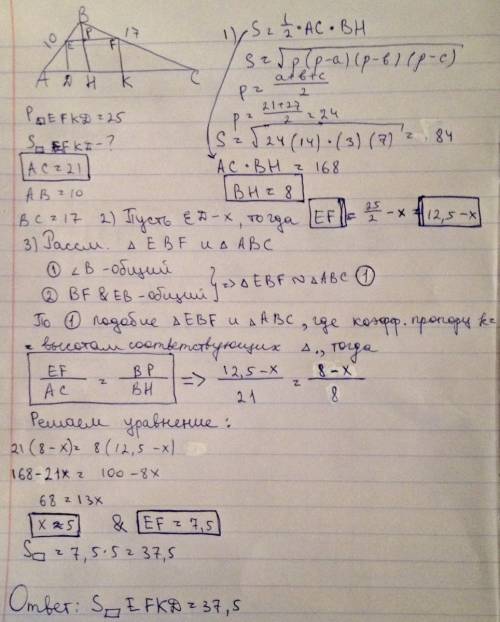 B
10
P
17
E
F
A
D
H
K
C
P□EFKD = 25
S□EFKD - ?
AC = 21
AB = 10
BC = 17
1) S = 1/2 · AC · BH
S = √p(p-a)(p-в)(p-c)
p = a+в+c/2
p = 21+27/2 = 24
S = √24(14)·(3)(7) = 84
AC · BH = 168
BH = 8
2) Пусть ED - x, тогда EF = 25/2 - x = 12,5 - x
3) Рассм. △ EBF и △ ABC
① ∠B - общий
② BF & EB - общий } => △EBF ~ △ABC ①
По ① подобие △EBF и △ABC, где коэфф. пропорц k =
= высотам соответствующих △., тогда
EF/AC = BP/BH => 12,5 - x/21 = 8 - x/8
Решаем уравнение:
21(8-x) = 8(12,5-x)
168 - 21x = 100 - 8x
68 = 13x
x ≈ 5 & EF = 7,5
S□ = 7,5 · 5 = 37,5
Ответ: S□EFKD = 37,5